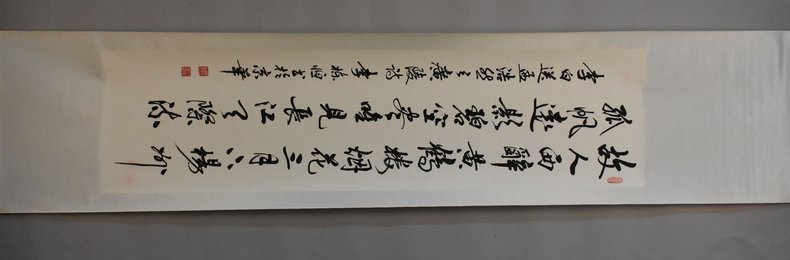 故人西辭黄鶴樓烟花三月下揚州
孤帆遠影碧空盡唯見長江天際流
李白送孟浩然之廣陵詩 李栋恒书於京華